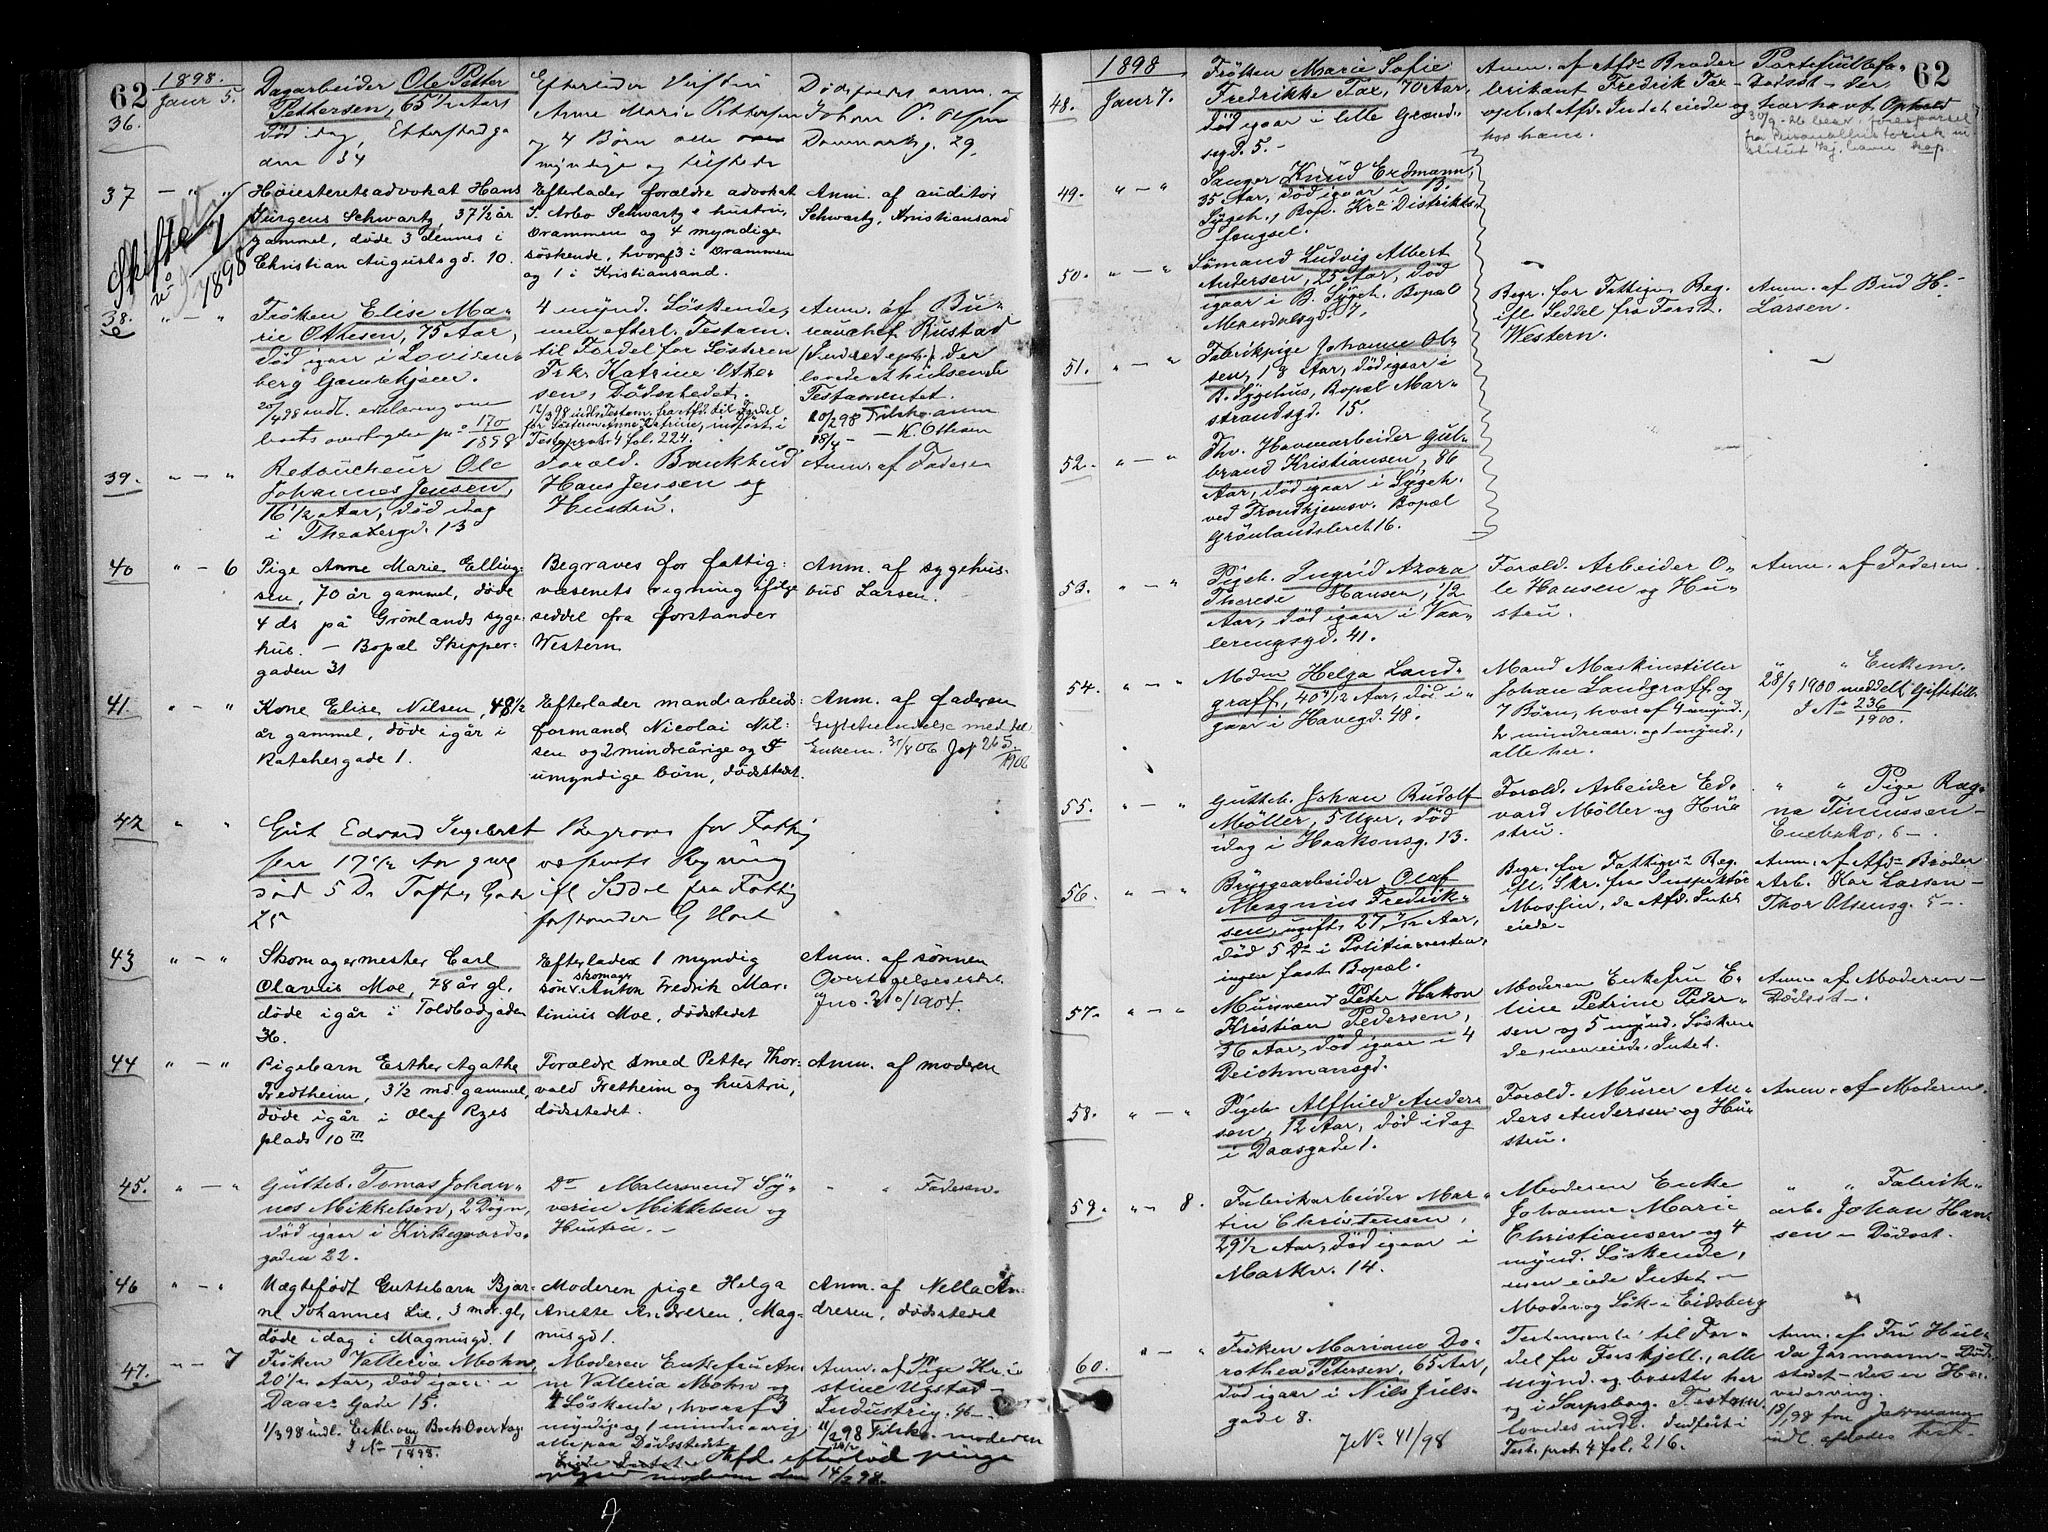 62
1898.
36.
Janr 5.
Dagarbeider Ole Petter
Pettersen, 65 1/2 Aar
død idag, Etterstadga
den 34
Efterlader
Anne Marie Pettersen
og 4 Børn alle
myndige og
Dødsfaldet anm. af
Johan P. Olsen
Danmarksg. 29.
37
Høiesteretsadvokat Hans
Jürgens Schwartz, 37 1/2 år
gammel, døde 3 dennes i
Christian Augustsgd. 10.
Efterlader forældre advokat
J. Arbo Schwartz & hustru,
Drammen og 4 myndige
søskende, hvoraf 3 i Drammen
og 1 i Kristiansand.
Anm. af auditør
Schwartz, Kristiansand
Skifte
1898
38.
Frøken Elise Ma-
rie Othesen, 75 Aar,
død igaar i Lovisen-
berg Gamlehjem.
indl. erklæring om
boets overtagelse 170/1898
4 mynd. Søskende,
men efterl. Testam.
til Fordel for Søsteren
Frk. Katrine Othe-
sen, Dødsstedet.
12/1 98 indl. Testam. fra Afd. til Fordel
for Søsteren Anne Katrine, indført i
Test. prot. 4 fol. 224.
Anm. af Bu-
reauchef Rustad
der
lovede at indsende
Testamentet.
K. Othesen
39.
Retoucheur Ole
Johannes Jensen,
16 1/2 Aar, død idag
i Theatergd. 13
Foræld. Bankbud
Hans Jensen og
Hustru.
Anm. af Faderen
40
" - 6
Pige Anne Marie Elling-
sen, 70 år gammel, døde
4 ds på Grønlands syge-
hus. - Bopæl Skipper-
gaden 31
Begraves for fattig-
væsenets regning ifølge
seddel fra forstander
Western
Anm. af sygehus-
bud Larsen.
41
Kone Elise Nilsen, 48 1/2
år gammel, døde igår i
Ratchesgade 1.
Efterlader mand arbeids-
formand Nicolai Nil-
sen og 2 mindreårige og
umyndige børn, dødsstedet.
Anm. af faderen
42
Gut Edvard Ingebret
17 1/2 Aar gml
død 5 Ds Toftes Gade
25
Begraves for Fattig
væsenets Regning
ifl Seddel fra Fattig
forstander G Hoet
43
Skomagermester Carl
Olavus Moe, 78 år gl.
døde igår i Toldbodgaden
36.
Efterlader 1 myndig
søn skomager Anton Fredrik Mar-
tinius Moe, dødsstedet
Anm. af sønnen
Jno. 210/1904.
44
Pigebarn Esther Agathe
Fredtheim, 3 1/2 md. gammel,
døde igår i Olaf Ryes
plads 10 III
Forældre Smed Petter Thor-
vald Fretheim og hustru,
dødsstedet.
Anm. af moderen
45.
Gutteb. Tomas Johan-
nes Mikkelsen, 2 Døgn,
død igaar i Kirkegaards-
gaden 22.
Do Malersvend Sø-
verin Mikkelsen og
Hustru. -
" " Faderen.
46
Uægtefødt Guttebarn Bjar-
ne Johannes Lie, 3 mdr. gl,
døde idag i Magnusgd. 1
Moderen pige Helga
Anette Andresen, Mag-
nusgd 1.
Anm. af Nella An-
dresen, dødsstedet
47.
" - 7
Frøken Valleria Mohn,
20 1/2 Aar, død igaar i
Daaes Gade 15.
1/3 98 indl. Erkl. om Boets Overtag.
J No 81/1898.
Moderen Enkefru An-
ne Valleria Mohn og
4 Søskende, hvoraf 3
myndige og 1 mindreaarig
alle paa Dødsstedet
Afd. efterlod penge
moderen den 14/2 98.
Anm. af Pige Kri-
stine Ugstad -
Industrig. 46 -
moderen
62
1898
48.
Janr 7.
Frøken Marie Sofie
Fredrikke Fax, 70 Aar,
død igaar i lille Grænd-
segd. 5. -
Anm. af Afds Broder Porteføillefa-
brikant Fredrik Fax - Dødsst - der
opl. at Afd. Intet eiede og har havt Ophold
hos ham.
49.
Sanger Knud Erdmann,
35 Aar, død igaar i B.
Sygeh., Bop. Kra. Distrikts-
fængsel.
50.
Sømand Ludvig Albert
Andersen, 25 Aar, død
igaar i B. Sygeh. Bopæl
gd. 7.
Begr. for Fattigv. Reg.
ifl. Seddel fra Forst.
Western.
Anm. af Bud H.
Larsen.
51.
Fabrikpige Johanne Ol-
sen, 18 Aar, død igaar i
B. Sygehus, Bopæl Mar-
strandsgd. 15.
52.
Fhv. Havnearbeider Gul-
brand Kristiansen, 86
Aar, død igaar i Sygeh.
ved Trondhjemsv. Bopæl
Grønlandsleret 16.
53.
Pigeb. Ingrid Azora
Therese Hansen, 1/2
Aar, død igaar i Vaa-
lerengsgd. 41.
Foræld. Arbeider O-
le Hansen og Hu-
stru.
Anm. af Faderen.
54.
Mdm Helga Land-
graff, 40 1/2 Aar, død i-
gaar i Havegd. 48.
Mand Maskinstiller
Johan Landgraff og
7 Børn, hvoraf 4 mynd.,
2 mindreaar. og 1 umynd.,
alle her.
" " Enkem.
28/9 1900 meddelt Giftetill.
J No 236/1900.
55.
Gutteb. Johan Rudolf
Møller, 5 Uger, død
idag i Haakonsg. 13.
Foræld. Arbeider Ed-
vard Møller og Hu-
stru.
" " Pige Rag-
na
Enebakv. 6 -
56.
Bryggearbeider Olaf
Magnus Fredrik-
sen, ugift, 27 Aar,
død 5 Ds i Politiarresten,
ingen fast Bopæl.
Begr. for Fattigv. Reg.
ifl. Skr. fra Inspektør
Mosfin, da Afd. Intet
eiede.
Anm. af Afds Broder
Arb. Kar Larsen -
Thor Olsensg. 5 -
57.
Mursvend Peter Hakon
Kristian Pedersen,
36 Aar, død igaar i 4
Deichmansgd.
Moderen Enkefru E-
line Petrine Peder-
sen og 5 mynd. Søsken-
de, men eiede Intet.
Anm. af Moderen -
Dødsst -.
58.
Pigeb. Alfhild Ander-
sen, 12 Aar, død idag
i Daasgade 1.
Foræld. Murer An-
ders Andersen og Hu-
stru.
Anm. af Moderen.
59.
" - 8.
Fabrikarbeider Mar-
tin Christensen,
29 1/2 Aar, død igaar i
Markv. 14.
Moderen Enke
Johanne Marie
Christiansen og 4
mynd. Søskende,
men eiede Intet -
Moder og Søsk. i Eidsberg
" " Fabrik-
arb. Johan Han-
sen - Dødsst.
60.
Frøken Mariane Do-
rothea Petersen, 65 Aar,
død igaar i Nils Juls-
gade 8.
J No 41/98
Testamente til For-
del for Forskjell., alle
mynd. og bosatte her
og i Sarpsborg. Testam.
lovedes indl. Indført i
Test. prot. 4 fol. 216.
Anm. af Fru Hul-
da Jarmann - Døds-
stedet -
18/1 98 fru Jarmann
indl. test.